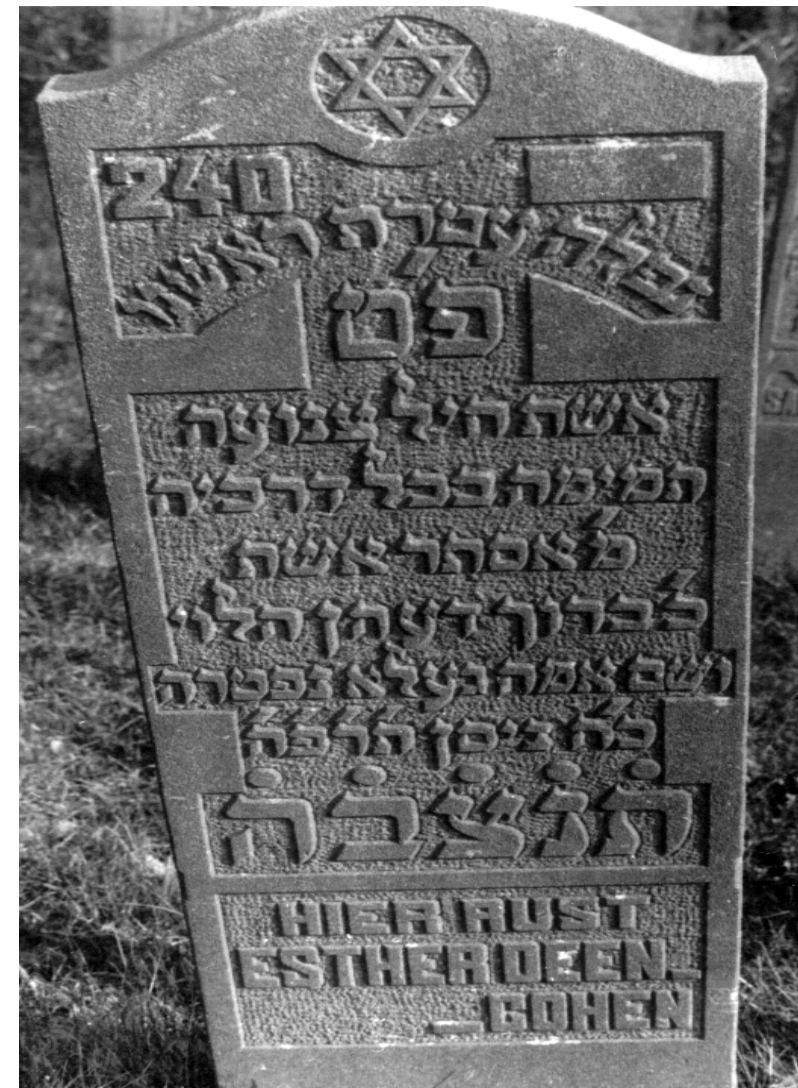 240
נפלה עטרת ראשנו
פט׳
אשת חיל צנועה
תמימה בכל דרכיה
מ׳ אסתר אשת
כ׳ ברוך דעהן הלוי
ושם אמה געלא נפטרה
כ׳ה׳ ניסן ת׳ר׳פ׳ה׳
ת׳נ׳צ׳ב׳ה׳
HIER RUST
ESTHER DEEN_
_COHEN